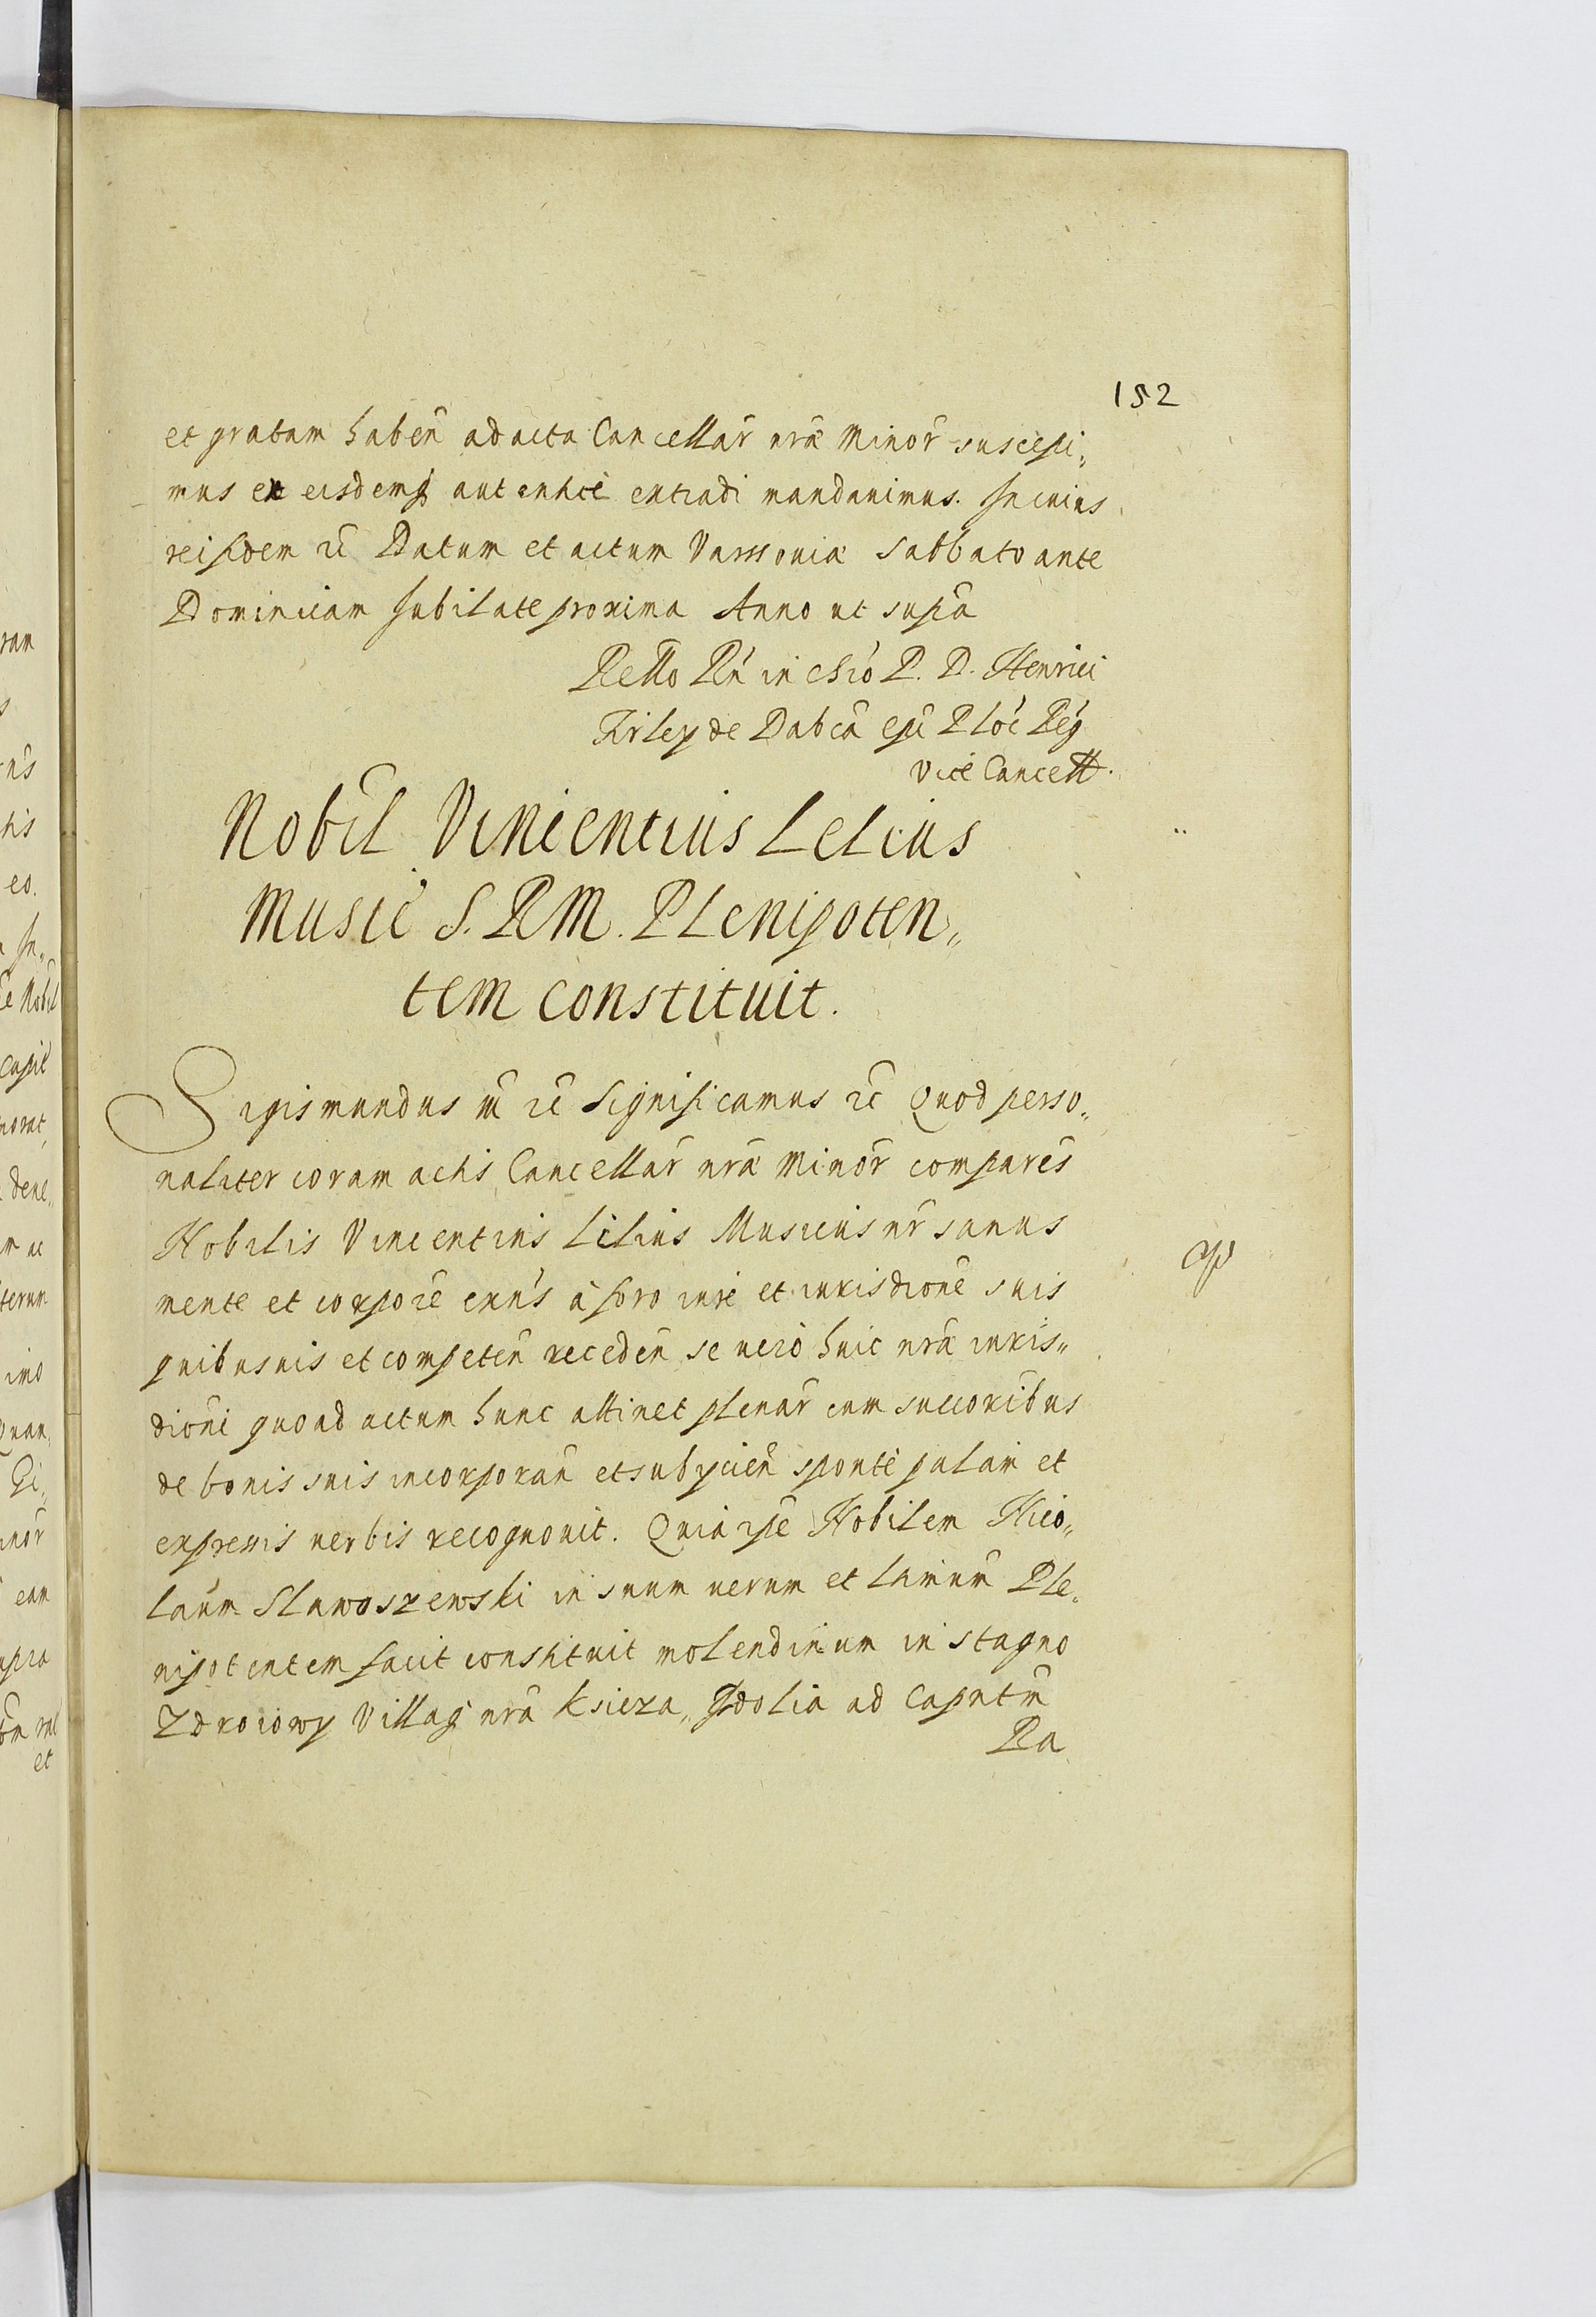 152
et gratam haben̄ ad acta Cancellar̄ nrã Minor̄ suscepi„
mus ex eisdemq̃ autentice extradi mandavimus. In cuius
rei fidem rc̃ Datum et actum Varssoviæ Sabbato ante
Dominicam Jubilate proxima Anno ut supã
Rello Rń in chro P. D. Henrici
Firley de Dabcã epi Ploć Reg
Vice Cancell.
Nobil Vincentius Lelius
Music S. R M. Plenipoten„
tem constituit.
Sigismundus iii rc̃ Significamus rc̃ Quod perso„
naliter coram actis Cancellar̄ nrã Minor̄ comparēs
Nobilis Vincentius Lilius Musicus nr̄ sanus
mente et corpore exn̄s à foro iure et iurisdione suis
quibusuis et competen̄ receden̄ se vero huic nrã iuris„
dioni quoad actum hunc attinet plenar̄ cum succoribus
de bonis suis incorporan̄ et subycien̄ sponte palam et
expressis verbis recognovit. Quia ipe Nobilem Nico„
laum Slawoszewski in suum verum et ltimum Ple„
nipotentem facit constituit molendinum in stagno
Zdroiowy Villag nrã Ksieza„ Ggdolia ad Capnt̄m
Ra